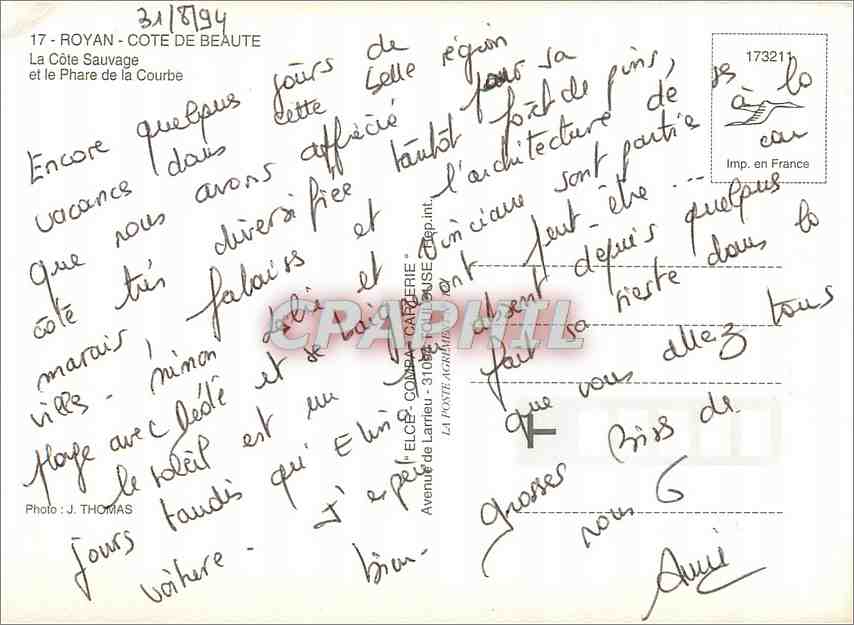 31/8/94
17 - ROYAN - COTE DE BEAUTE
La Côte Sauvage
et le Phare de la Courbe
173211
Imp. en France
Encore quelques jours de
vacances dans cette belle région
que nous avons apprécié pour sa
côte très diversifiée tantôt forêt de pins,
marais, falaises et l'architecture de ses
villes - Ninon et sont parties à la
plage avec Dédé et se baigneront peut-être ... car
le soleil est un peu absent depuis quelques
jours tandis qu' fait sa sieste dans la
voiture - J'espère que vous allez tous
bien - grosses bises de
nous 6
" ELCE - COMPA - CARTERIE "
Avenue de Larrieu - TOULOUSE - Rep.int.
LA POSTE AGRÉMENT
CPAPHIL
Photo : J. THOMAS